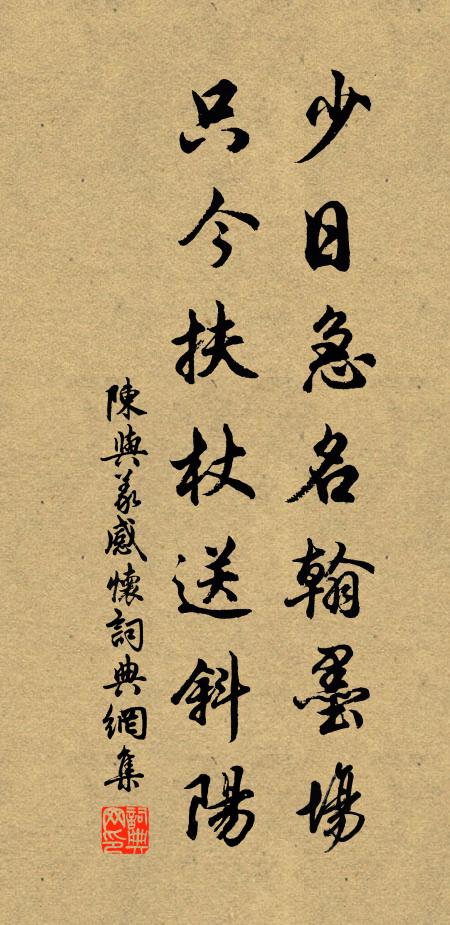 少日急名翰墨場
只今扶杖送斜陽
陳與義感懷詞典網集
詞典網印